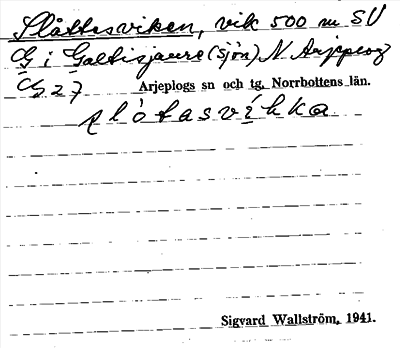 Slåttesviken, vik 500 m SV
G i Galtisjaure (sjön) N Arjeplog
G 27 Arjeplogs sn och tg. Norrbottens län.
slòtasvìkka
Sigvard Wallström, 1941.